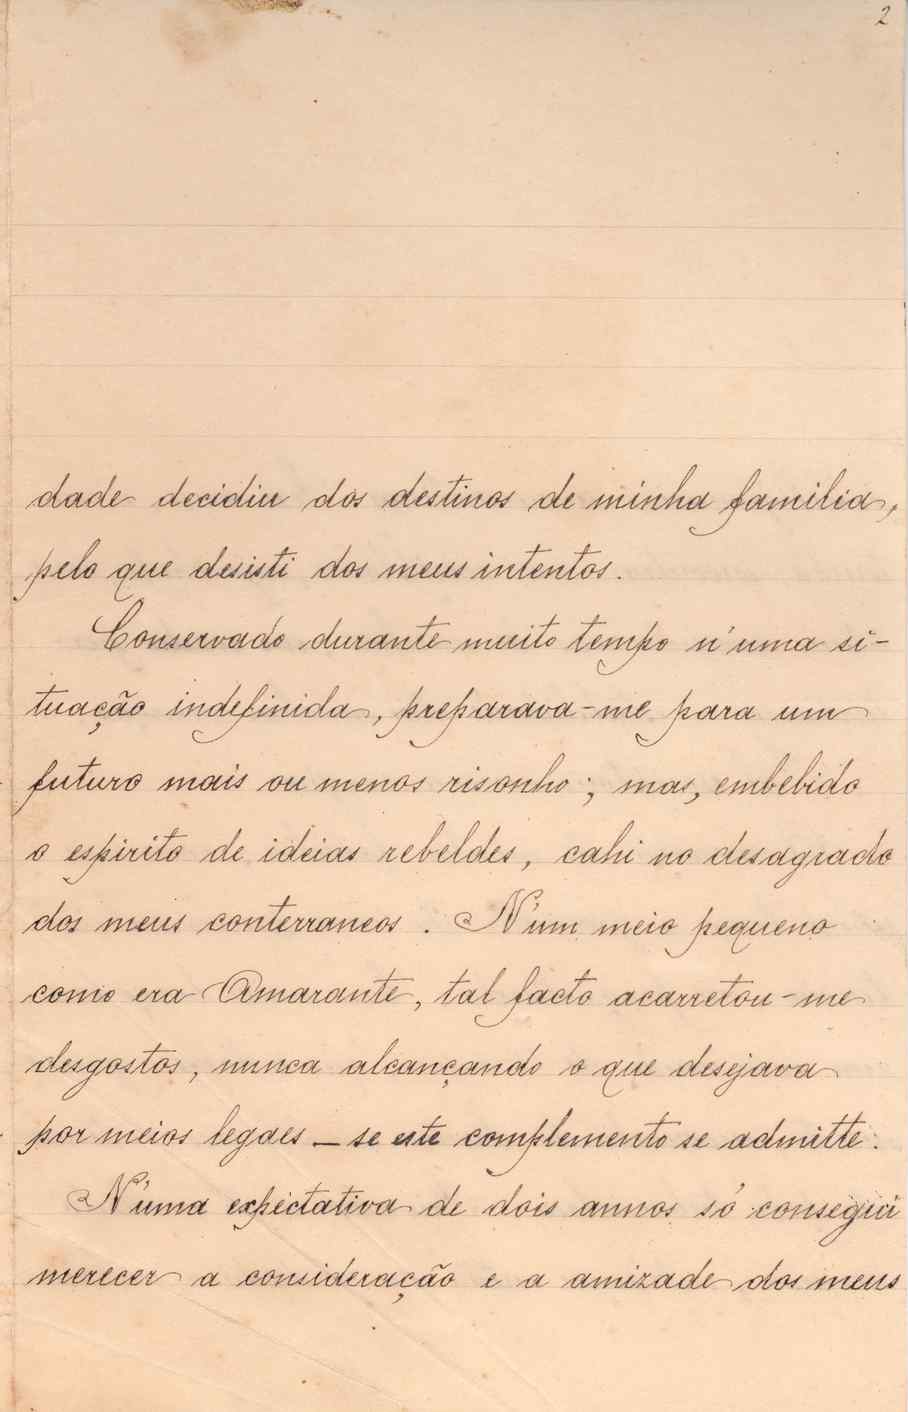 2
dade decidiu dos destinos de minha familia,
pelo que desisti dos meus intentos.
Conservado durante muito tempo n'uma si-
tuação indefinida, preparava-me para um
futuro mais ou menos risonho; mas, embebido
o espirito de ideias rebeldes, cahi no desagrado
dos meus conterraneos. N'um meio pequeno
como era Amarante, tal facto acarretou-me
desgostos, nunca alcançando o que desejava
por meios legaes — se este complemento se admitte.
N'uma expectativa de dois annos só consegui
merecer a consideração e a amizade dos meus